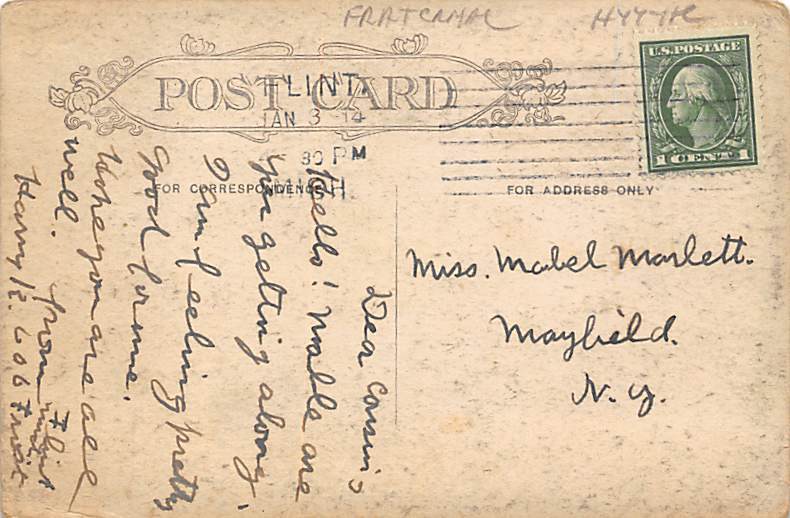 FRATERNAL
POST CARD
FLINT
JAN 3 14
30 PM
MICH
U.S. POSTAGE
1 CENT
FOR CORRESPONDENCE
FOR ADDRESS ONLY
Dea Cousins
Hello! Mable are
you getting along,
I am feeling pretty
good for me.
Hope you are all
well.
from Flint
Harry E.
Miss. Mabel Marlett.
Mayfield.
N.Y.